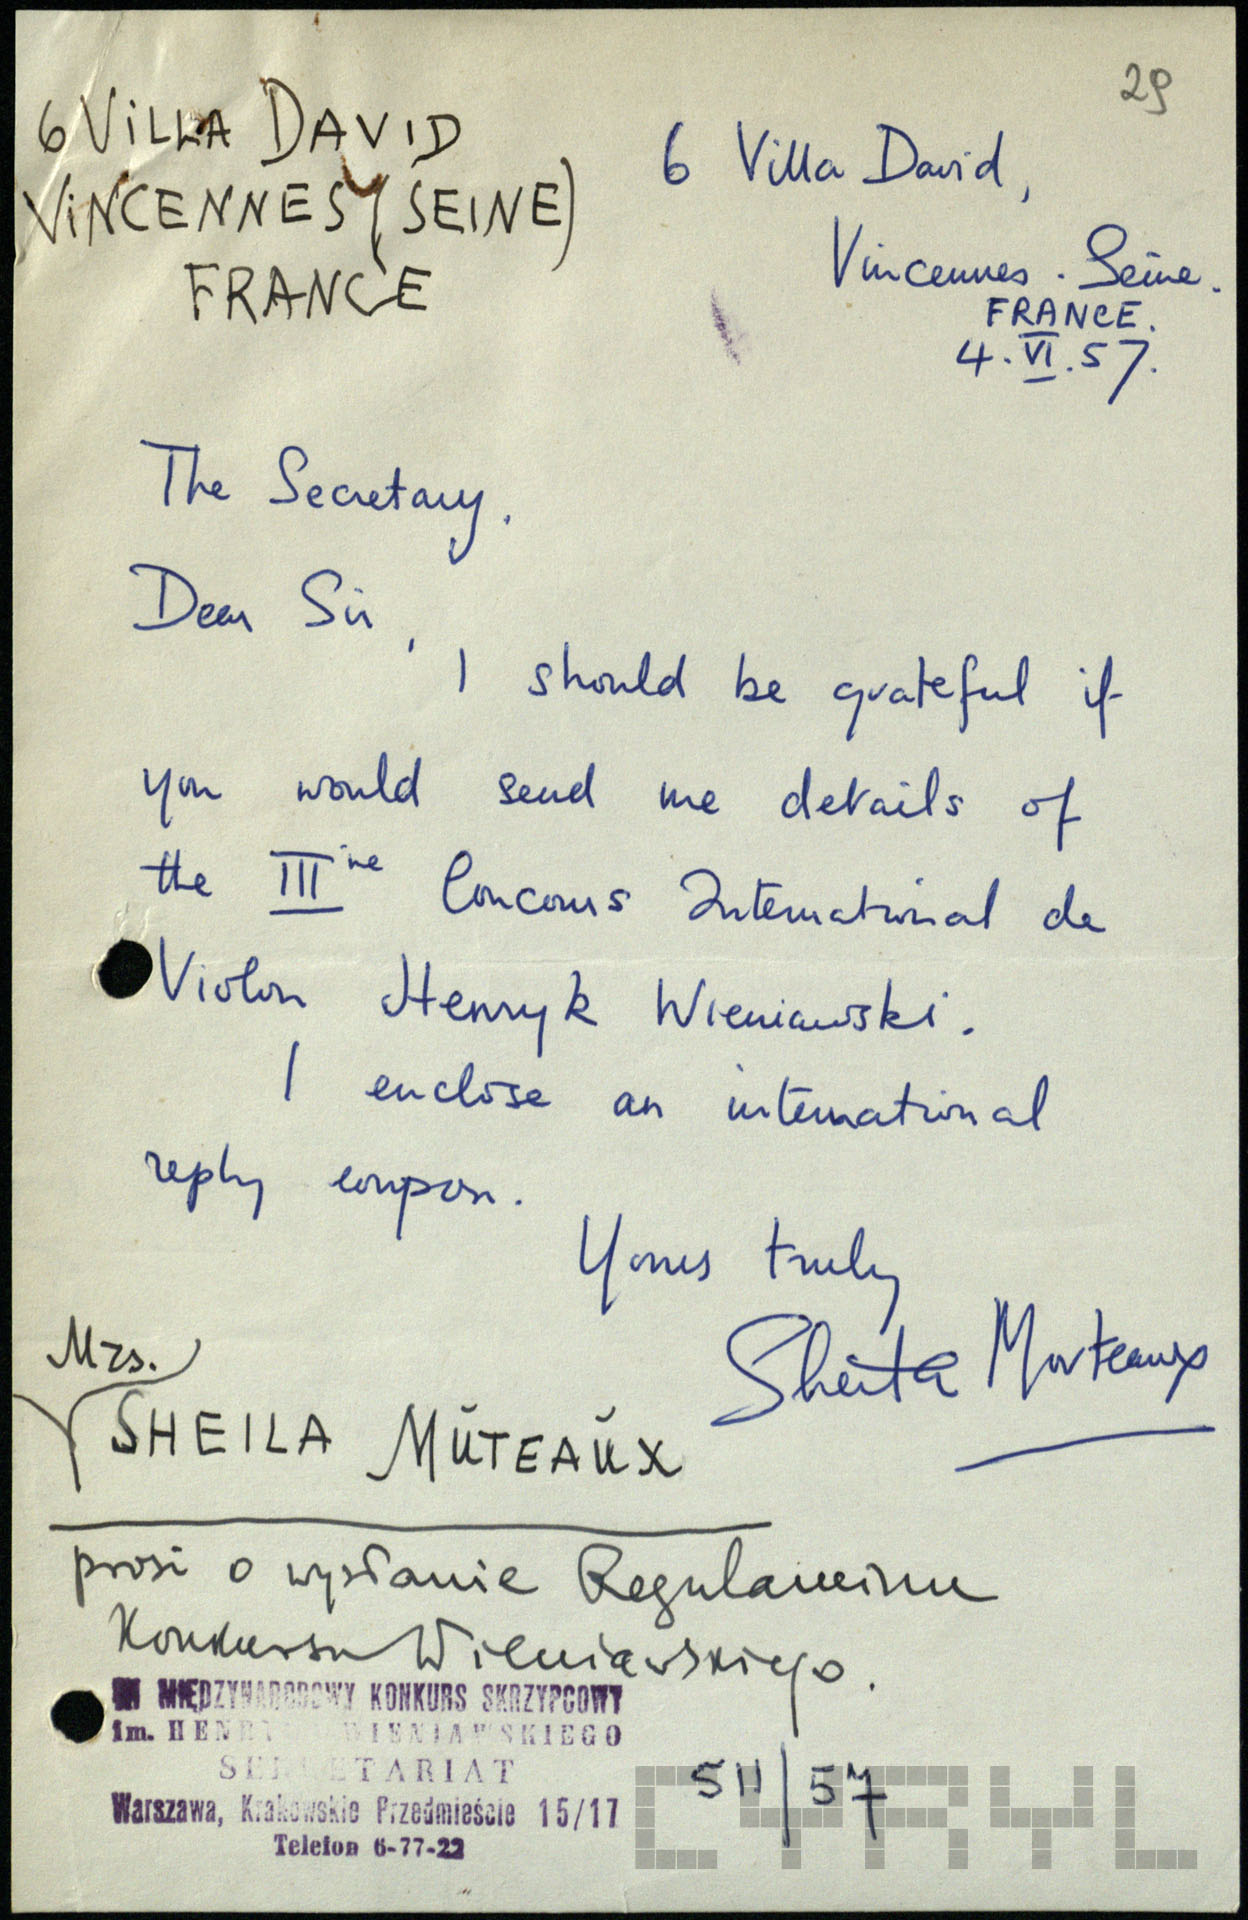 29
6 VILLA DAVID
VINCENNES (SEINE)
FRANCE
6 Villa David,
Vincennes . Seine.
FRANCE.
4.VI.57.
The Secretary.
Dear Sir,
I should be grateful if
you would send me details of
the III me Concours International de
Violon Henryk Wieniawski.
I enclose an international
reply coupon.
Yours truly
Sheila Morteaux
Mrs.
SHEILA MŬTEAŬX
prosi o wysłanie Regulaminu
Konkursu Wieniawskiego.
III MIĘDZYNARODOWY KONKURS SKRZYPCOWY
im. HENRYKA WIENIAWSKIEGO
SEKRETARIAT
Warszawa, Krakowskie Przedmieście 15/17
Telefon 6-77-22
511/57
CYRYL